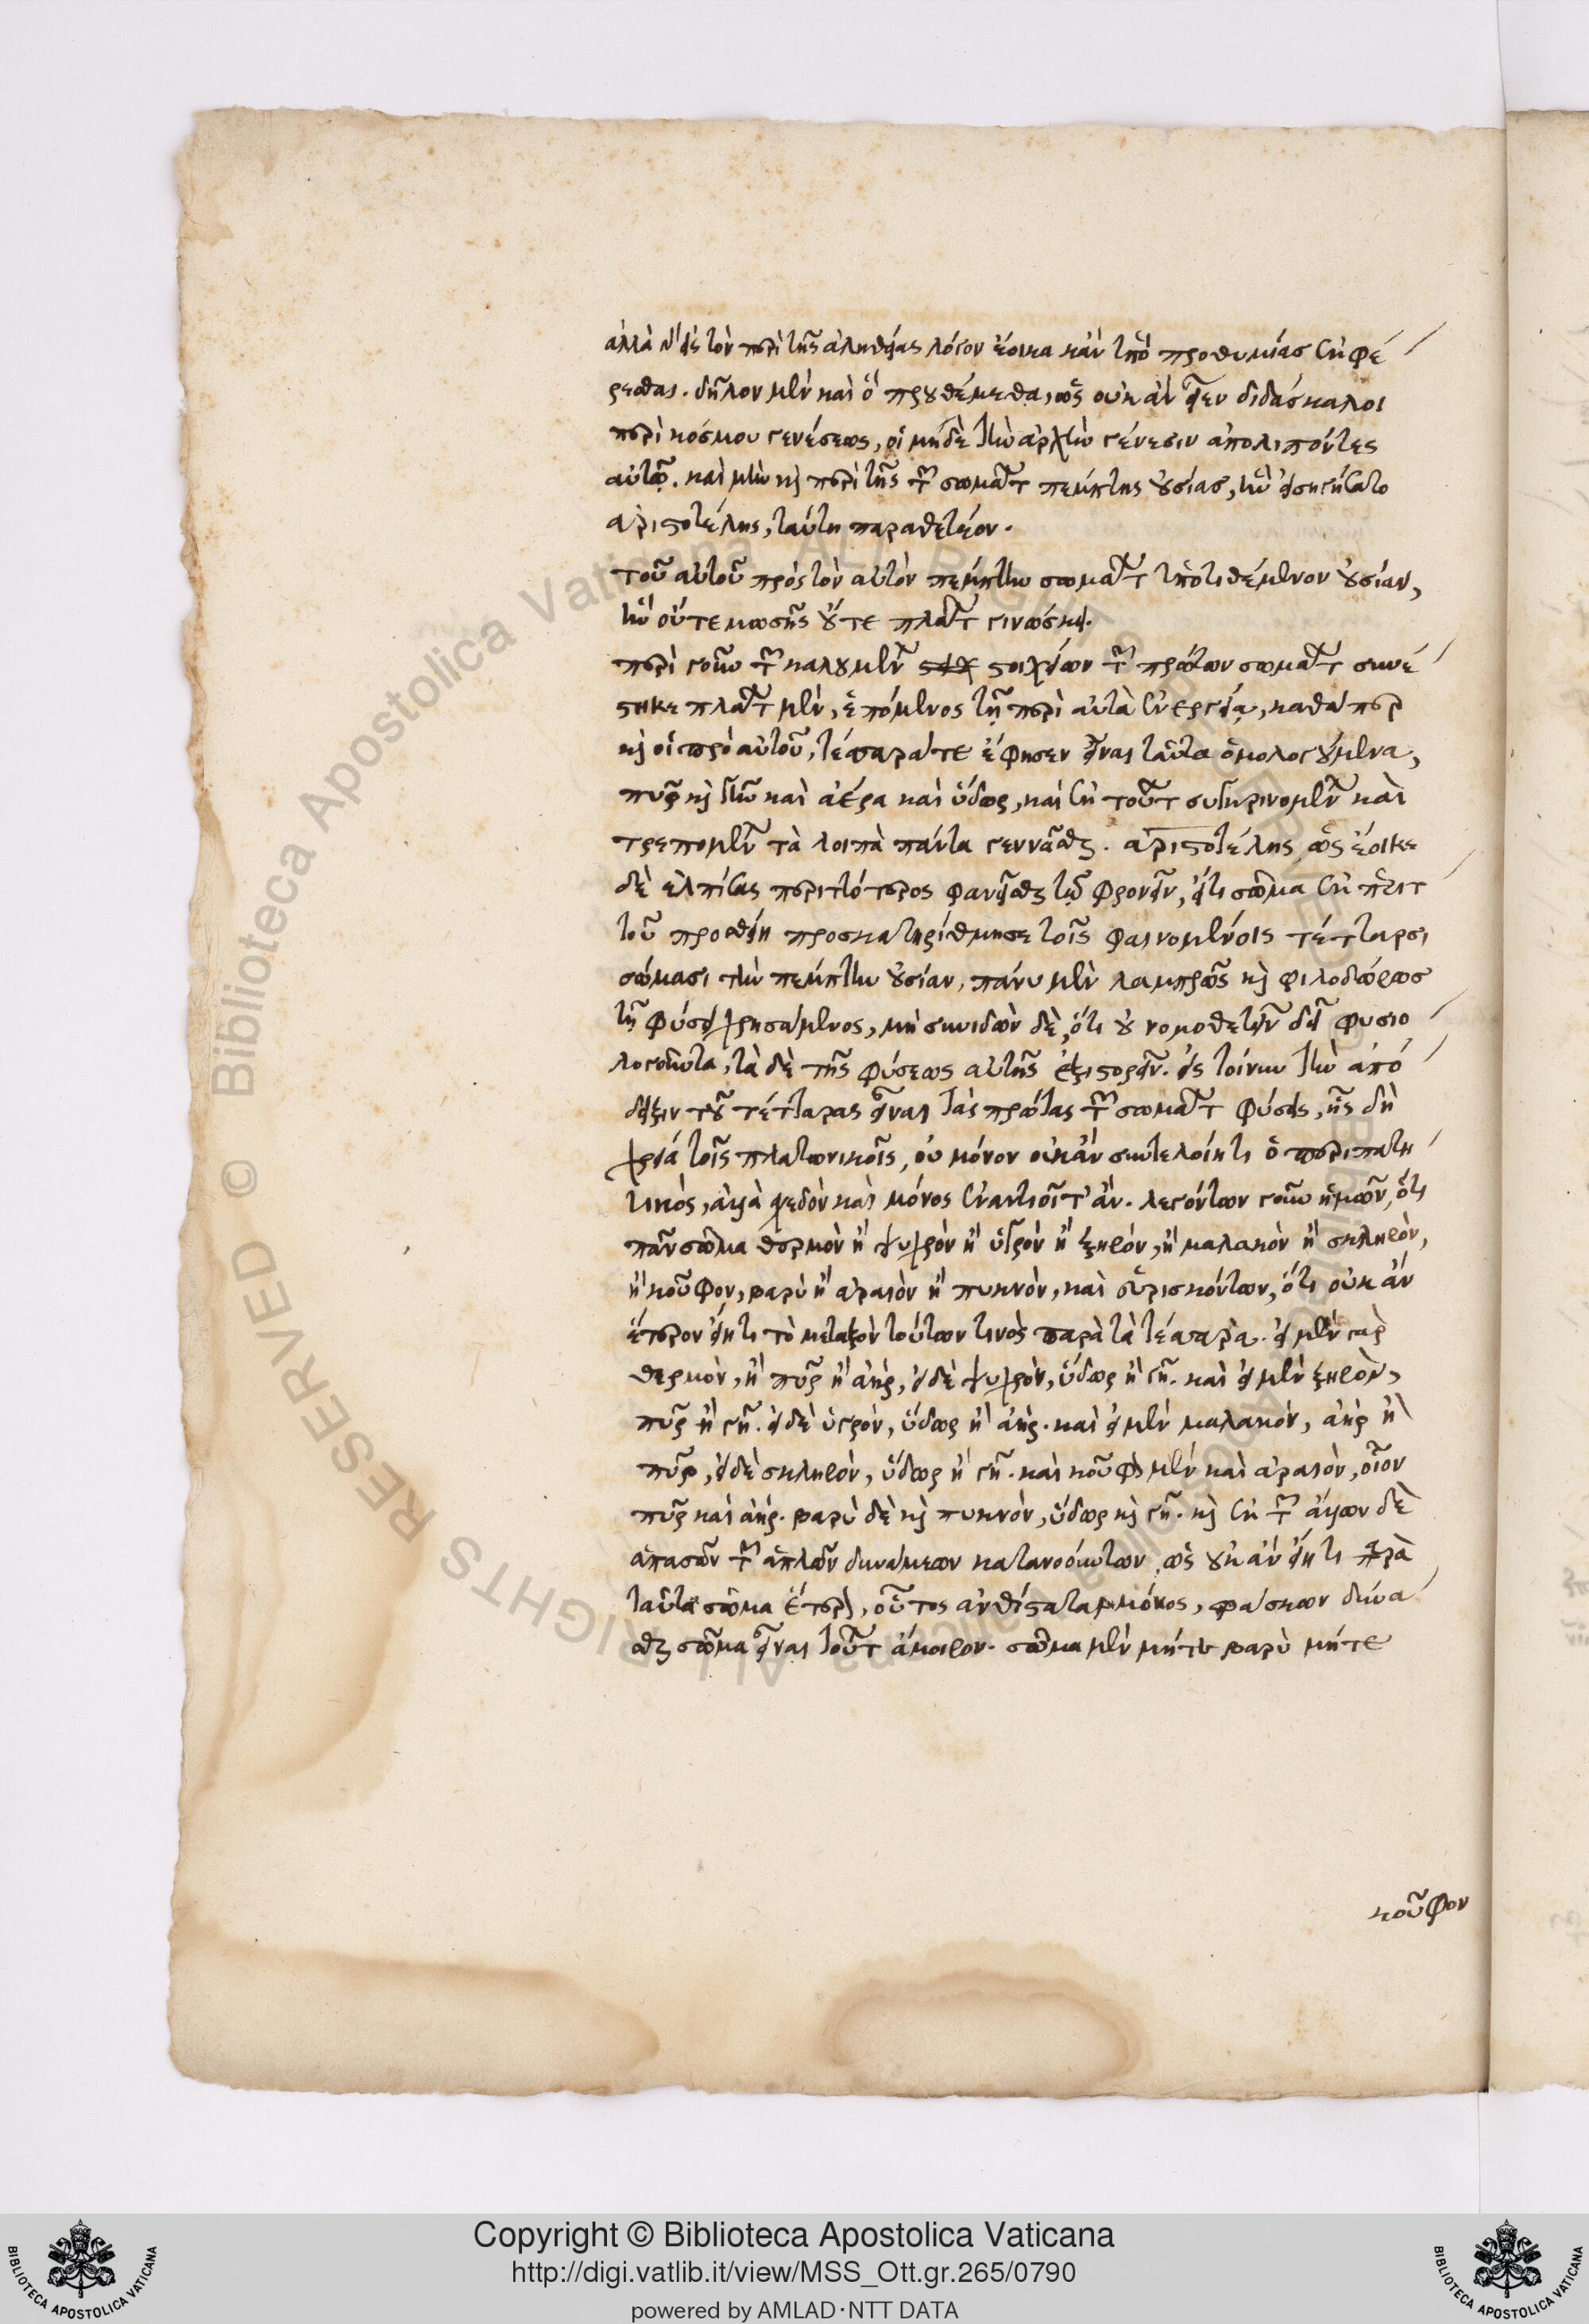 ἀλλὰ γὰρ εἰς τὸν περὶ τῆς ἀληθείας λόγον ἔοικα κἂν ὑπὸ προθυμίας ἐκφέ
ρεσθαι. δῆλον μὲν καὶ ὃ προυθέμεθα, ὡς οὐκ ἂν εἶεν διδάσκαλοι
περὶ κόσμου γενέσεως, οἱ μηδὲ τὴν ἀρχὴν γένεσιν ἀπολιπόντες
αὐτῷ. καὶ μὴν καὶ περὶ τῆς τῶν σωμάτων πέμπτης οὐσίας, ἣν εἰσηγήσατο
ἀριστοτέλης, ταύτῃ παραθετέον.
τοῦ αὐτοῦ πρὸς τὸν αὐτὸν πέμπτην σωμάτων ὑποτιθέμενον οὐσίαν,
ἣν οὔτε μωσῆς οὔτε πλάτων γινώσκει.
περὶ γοῦν τῶν καλουμένων στοιχείων τῶν πρώτων σωμάτων συνέ
στηκε πλάτων μὲν, ἑπόμενος τῇ περὶ αὐτὰ ἐνεργείᾳ, καθάπερ
καὶ οἱ πρὸ αὐτοῦ, τέσσαρά τε ἔφησεν εἶναι ταῦτα ὁμολογούμενα,
πῦρ καὶ γῆν καὶ ἀέρα καὶ ὕδωρ, καὶ ἐκ τούτων συγκρινομένων καὶ
τρεπομένων τὰ λοιπὰ πάντα γεννᾶσθαι. ἀριστοτέλης ὡς ἔοικε
δὲ ἐλπίσας περιττότερος φανεῖσθαι τῷ φρονεῖν, εἴ τι σῶμα ἐκ περιτ
τοῦ προσθείη προσκατηρίθμησε τοῖς φαινομένοις τέτταρσι
σώμασι τὴν πέμπτην οὐσίαν, πάνυ μὲν λαμπρῶς καὶ φιλοδώρως
τῇ φύσει χρησάμενος, μὴ συνιδὼν δὲ, ὅτι οὐ νομοθετεῖν δεῖ φυσιο
λογοῦντα, τὰ δὲ τῆς φύσεως αὐτῆς ἐξιστορεῖν. εἰς τοίνυν τὴν ἀπό
δειξιν τοῦ τέτταρας εἶναι τὰς πρώτας τῶν σωμάτων φύσεις, ἧς δὴ
χρεία τοῖς πλατωνικοῖς, οὐ μόνον οὐκ ἂν συντελοίη τι ὁ περιπατη
τικὸς, ἀλλὰ σχεδὸν καὶ μόνος ἐναντιοῖτ' ἄν. λεγόντων γοῦν ἡμῶν, ὅτι
πᾶν σῶμα θερμὸν ἢ ψυχρὸν ἢ ὑγρὸν ἢ ξηρὸν, ἢ μαλακὸν ἢ σκληρὸν,
ἢ κοῦφον, βαρὺ ἢ ἀραιὸν ἢ πυκνὸν, καὶ εὑρισκόντων, ὅτι οὐκ ἂν
ἕτερον εἴη τι τὸ μεταξὸν τούτων τινὸς παρὰ τὰ τέσσαρα. εἰ μὲν γὰρ
θερμὸν, ἢ πῦρ ἢ ἀὴρ, εἰ δὲ ψυχρὸν, ὕδωρ ἢ γῆ. καὶ εἰ μὲν ξηρὸν,
πῦρ ἢ γῆ. εἰ δὲ ὑγρὸν, ὕδωρ ἢ ἀήρ. καὶ εἰ μὲν μαλακὸν, ἀὴρ ἢ
πῦρ, εἰ δὲ σκληρὸν, ὕδωρ ἢ γῆ. καὶ κοῦφον μὲν καὶ ἀραιὸν, οἷον
πῦρ καὶ ἀήρ. βαρὺ δὲ καὶ πυκνὸν, ὕδωρ καὶ γῆ. καὶ ἐκ τῶν ἄλλων δὲ
ἁπασῶν τῶν ἁπλῶν δυνάμεων κατανοούντων, ὡς οὐκ ἂν εἴη τι παρὰ
ταῦτα σῶμα ἕτερον, οὗτος ἀνθίσταται μόνος, φάσκων δύνα
σθαι σῶμα εἶναι τούτων ἄμοιρον. σῶμα μὲν μήτε βαρὺ μήτε
κοῦφον
Copyright © Biblioteca Apostolica Vaticana
http://digi.vatlib.it/view/MSS_Ott.gr.265/0790
powered by AMLAD·NTT DATA